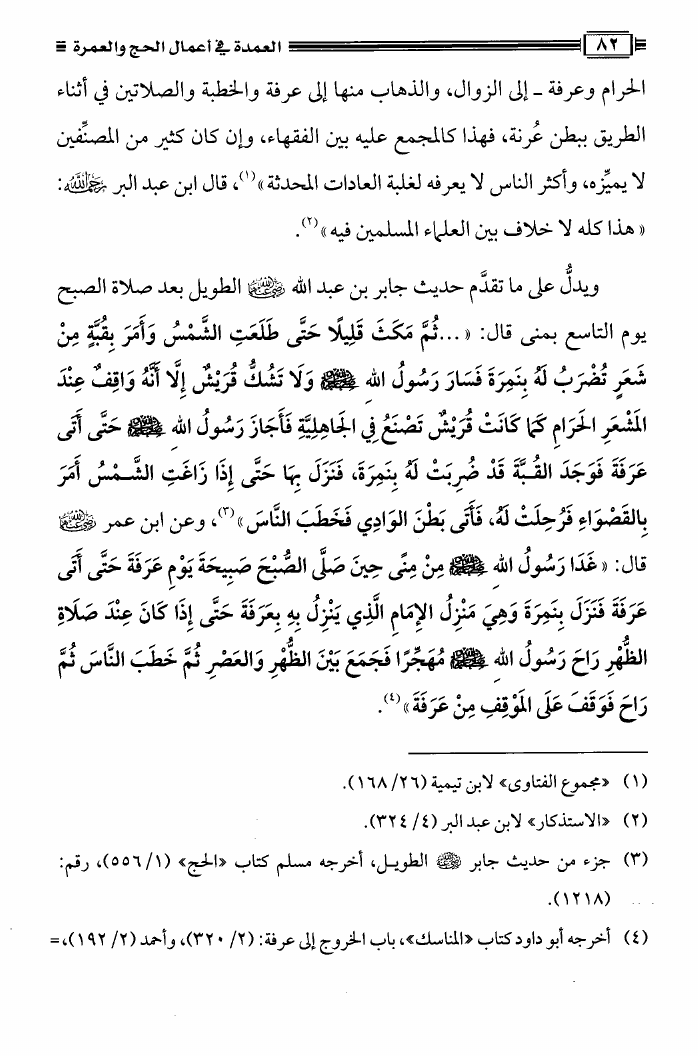 ٨٢ العمدة في أعمال الحج والعمرة
الحرام وعرفة ـ إلى الزوال، والذهاب منها إلى عرفة والخطبة والصلاتين في أثناء
الطريق ببطن عُرنة، فهذا كالمجمع عليه بين الفقهاء، وإن كان كثير من المصنِّفين
لا يميِّزه، وأكثر الناس لا يعرفه لغلبة العادات المحدثة»(١)، قال ابن عبد البر رحمه الله:
«هذا كله لا خلاف بين العلماء المسلمين فيه»(٢).
ويدلُّ على ما تقدَّم حديث جابر بن عبد الله رضي الله عنهما الطويل بعد صلاة الصبح
يوم التاسع بمنى قال: «...ثُمَّ مَكَثَ قَلِيلًا حَتَّى طَلَعَتِ الشَّمْسُ وَأَمَرَ بِقُبَّةٍ مِنْ
شَعَرٍ تُضْرَبُ لَهُ بِنَمِرَةَ فَسَارَ رَسُولُ اللهِ ﷺ وَلَا تَشُكُّ قُرَيْشٌ إِلَّا أَنَّهُ وَاقِفٌ عِنْدَ
المَشْعَرِ الحَرَامِ كَمَا كَانَتْ قُرَيْشٌ تَصْنَعُ فِي الجَاهِلِيَّةِ فَأَجَازَ رَسُولُ اللهِ ﷺ حَتَّى أَتَى
عَرَفَةَ فَوَجَدَ القُبَّةَ قَدْ ضُرِبَتْ لَهُ بِنَمِرَةَ، فَنَزَلَ بِهَا حَتَّى إِذَا زَاغَتِ الشَّمْسُ أَمَرَ
بِالقَصْوَاءِ فَرُحِلَتْ لَهُ، فَأَتَى بَطْنَ الوَادِي فَخَطَبَ النَّاسَ»(٣)، وعن ابن عمر رضي الله عنهما
قال: «غَدَا رَسُولُ اللهِ ﷺ مِنْ مِنًى حِينَ صَلَّى الصُّبْحَ صَبِيحَةَ يَوْمِ عَرَفَةَ حَتَّى أَتَى
عَرَفَةَ فَنَزَلَ بِنَمِرَةَ وَهِيَ مَنْزِلُ الإِمَامِ الَّذِي يَنْزِلُ بِهِ بِعَرَفَةَ حَتَّى إِذَا كَانَ عِنْدَ صَلَاةِ
الظُّهْرِ رَاحَ رَسُولُ اللهِ ﷺ مُهَجِّرًا فَجَمَعَ بَيْنَ الظُّهْرِ وَالعَصْرِ ثُمَّ خَطَبَ النَّاسَ ثُمَّ
رَاحَ فَوَقَفَ عَلَى المَوْقِفِ مِنْ عَرَفَةَ»(٤).
(١) «مجموع الفتاوى» لابن تيمية (٢٦/ ١٦٨).
(٢) «الاستذكار» لابن عبد البر (٤/ ٣٢٤).
(٣) جزء من حديث جابر رضي الله عنه الطويل، أخرجه مسلم كتاب «الحج» (١/ ٥٥٦)، رقم:
(١٢١٨).
(٤) أخرجه أبو داود كتاب «المناسك»، باب الخروج إلى عرفة: (٢/ ٣٢٠)، وأحمد (٢/ ١٩٢)،=